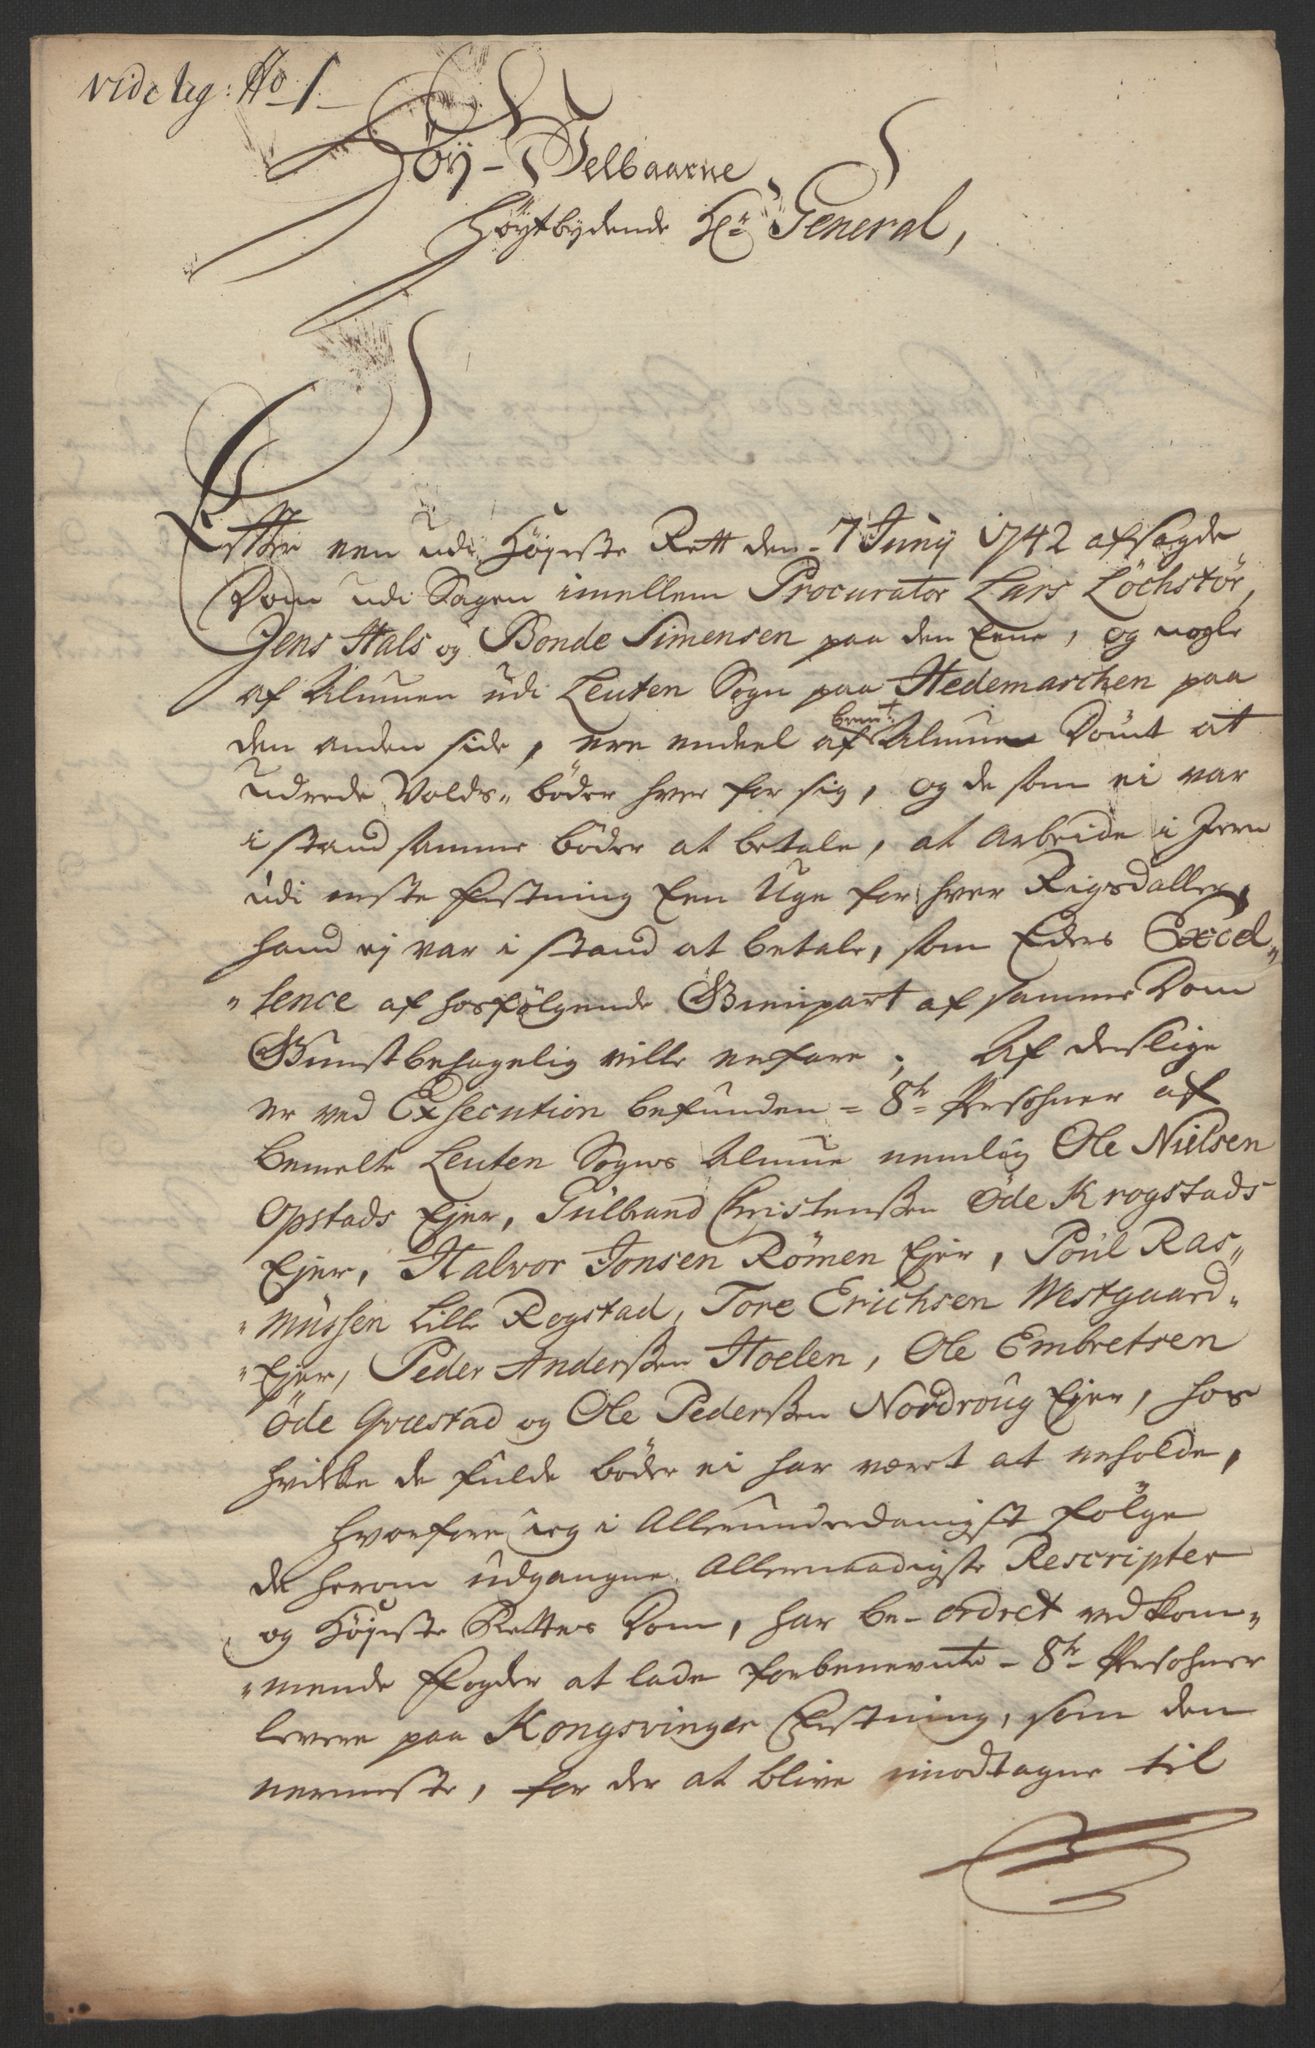 vide leg: No 1
Høy-Velbaarne
Høytbydende Hr: General,
Efter een udi Høyeste Rett den 7 Juny 1742 afsagde
Dom udi Sagen imellem Procurator Lars Löchstör,
Jens Hals og Bonde Simensen paa den Eene, og nogle
af Almuen udi Leuten Sogn paa Hedemarchen paa
den anden side, ere endeel af bemte Almue Dömt at
udrede Volds-böder hver for sig, og de som ei var
i stand samme böder at betale, at Arbeide i Jern
udi neste Festning Een Uge for hver Rigsdaller,
hand ej var i stand at betale, som Eders Excel-
-lence af hosfölgende Gienpart af samme Dom
Gunstbehagelig ville erfare; Af deslige
er ved Exsecution befunden = 8te Persohner af
bemelte Leuten Sogns Almue nemlig Ole Nielsen
Opstads Ejer, Gulbrand Christenßen Öde Krogstads
Ejer, Halvor Jonsen Römen Ejer, Poul Ras-
-mussen Lille Rogstad, Tore Erichsen Westgaard-
-Ejer, Peder Anderßen Hoelen, Ole Embretsen
Öde Qvæstad og Ole Pederßen Nordroug Ejer, hos
hvilke de fulde böder ei har været at erholde,
hvorfore jeg i Allerunderdanigst fölge
de herom udgangne Allernaadigste Rescripter
og Höyeste Rettes Dom, har be-ordret vedkom-
-mende Fogder at lade forbenevnte 8te Persohner
levere paa Kongsvinger Festning, som den
nermeste, for der at blive imodtagne til